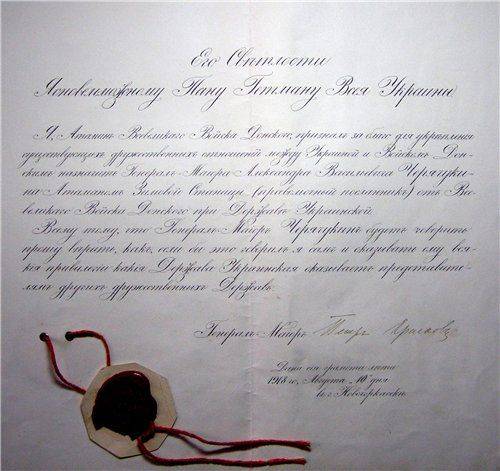 Его Свѣтлости
Ясновельможному Пану Гетману Всея Украины
Я, Атаманъ Всевеликаго Войска Донского, призналъ за благо для укрѣпленія
существующихъ дружественныхъ отношеній между Украиной и Войскомъ Дон-
скимъ назначить Генералъ-Маіора Александра Васильевича Черячуки-
на Атаманомъ Зимовой Станицы (полномочный посланникъ) отъ Все-
великаго Войска Донского при Державѣ Украинской.
Всему тому, что Генералъ-Маіоръ Черячукинъ будетъ говорить
прошу вѣрить, какъ если бы это говорилъ я самъ и оказывать ему вся-
кія привилегіи какія Держава Украинская оказываетъ представите-
лямъ другихъ дружественныхъ Державъ.
Генералъ-Маіоръ Петръ Красновъ
Дана сія грамота лѣта
1918 го, Августа 10 дня
въ г. Новочеркасскѣ.